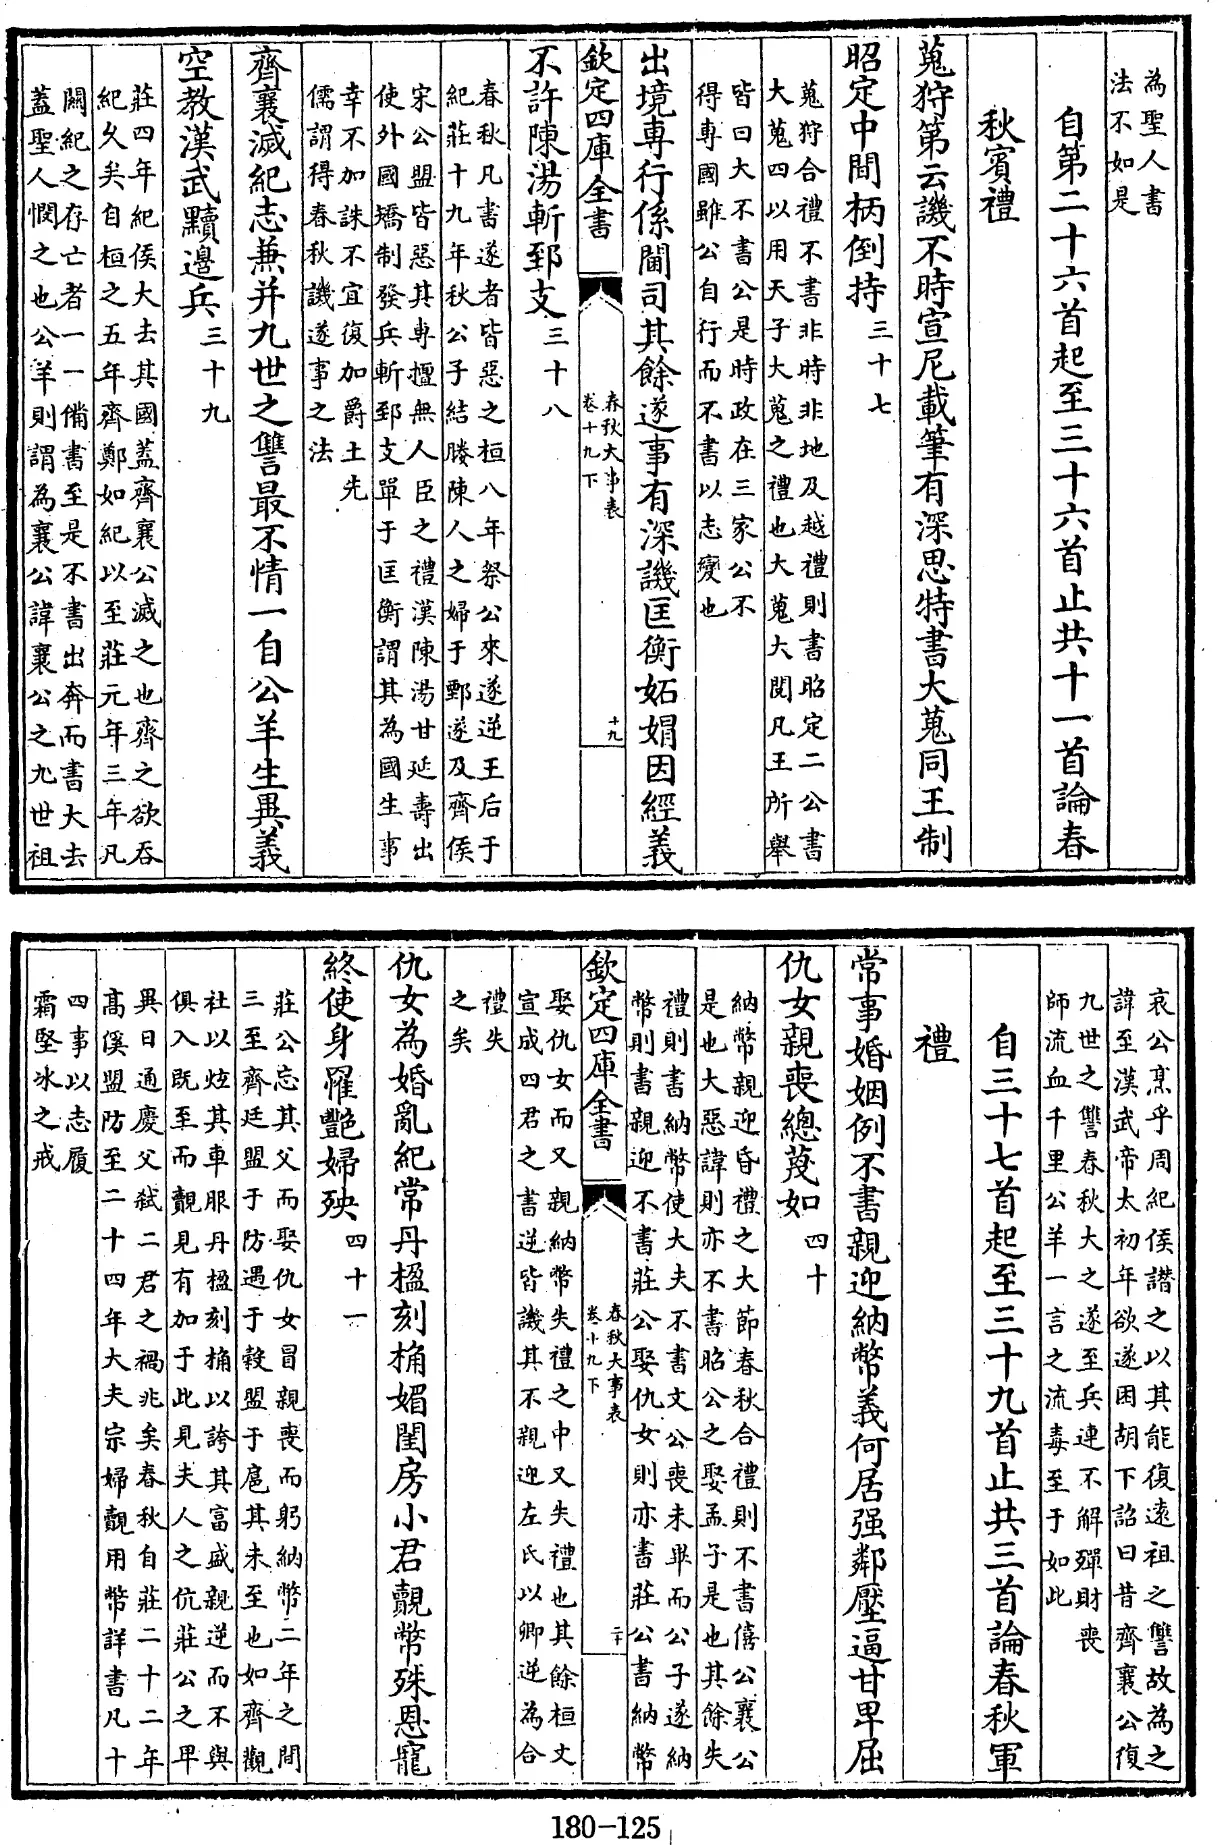 為聖人書
法不如是
自第二十六首起至三十六首止共十一首論春
秋賓禮
蒐狩第云譏不時宣尼載筆有深思特書大蒐同王制
昭定中間柄倒持三十七
蒐狩合禮不書非時非地及越禮則書昭定二公書
大蒐四以用天子大蒐之禮也大蒐大閱凡王所舉
皆曰大不書公是時政在三家公不
得專國雖公自行而不書以志變也
出境專行係閫司其餘遂事有深譏匡衡妬媢因經義
欽定四庫全書
春秋大事表
卷十九下
十九
不許陳湯斬郅支三十八
春秋凡書遂者皆惡之桓八年祭公來遂逆王后于
紀莊十九年秋公子結媵陳人之婦于鄄遂及齊侯
宋公盟皆惡其專擅無人臣之禮漢陳湯甘延壽出
使外國矯制發兵斬郅支單于匡衡謂其為國生事
幸不加誅不宜復加爵土先
儒謂得春秋譏遂事之法
齊襄滅紀志兼并九世之讐最不情一自公羊生異義
空教漢武黷邊兵三十九
莊四年紀侯大去其國蓋齊襄公滅之也齊之欲吞
紀久矣自桓之五年齊鄭如紀以至莊元年三年凡
關紀之存亡者一一備書至是不書出奔而書大去
蓋聖人憫之也公羊則謂為襄公諱襄公之九世祖
哀公烹乎周紀侯譖之以其能復遠祖之讐故為之
諱至漢武帝太初年欲遂困胡下詔曰昔齊襄公復
九世之讐春秋大之遂至兵連不解殫財喪
師流血千里公羊一言之流毒至于如此
自三十七首起至三十九首止共三首論春秋軍
禮
常事婚姻例不書親迎納幣義何居强鄰壓逼甘卑屈
仇女親喪總蔑如四十
納幣親迎昏禮之大節春秋合禮則不書僖公襄公
是也大惡諱則亦不書昭公之娶孟子是也其餘失
禮則書納幣使大夫不書文公喪未畢而公子遂納
幣則書親迎不書莊公娶仇女則亦書莊公書納幣
欽定四庫全書
春秋大事表
卷十九下
二十
娶仇女而又親納幣失禮之中又失禮也其餘桓文
宣成四君之書逆皆譏其不親迎左氏以卿逆為合
禮失
之矣
仇女為婚亂紀常丹楹刻桷媚閨房小君覿幣殊恩寵
終使身罹艷婦殃四十一
莊公忘其父而娶仇女冒親喪而躬納幣二年之間
三至齊廷盟于防遇于穀盟于扈其未至也如齊觀
社以炫其車服丹楹刻桷以誇其富盛親逆而不與
俱入既至而覿見有加于此見夫人之伉莊公之卑
異日通慶父弒二君之禍兆矣春秋自莊二十二年
高傒盟防至二十四年大夫宗婦覿用幣詳書凡十
四事以志履
霜堅冰之戒
180-125